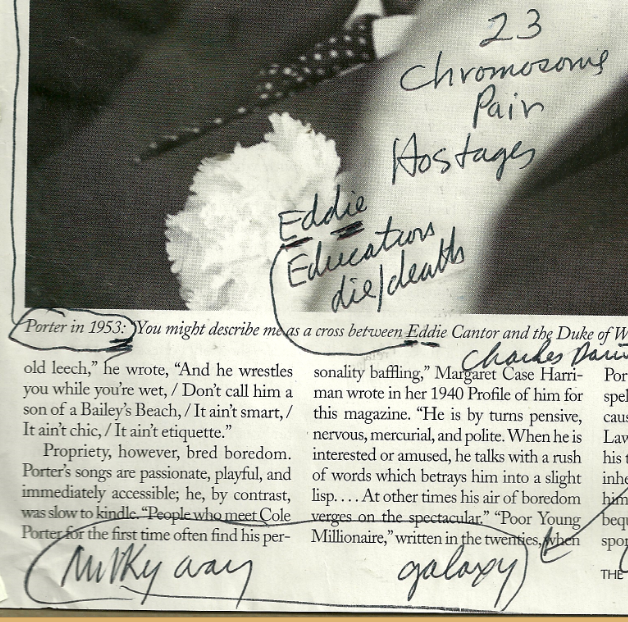 23
Chromosome
Pair
Hostages
Eddie
Educations
die/deaths
Porter in 1953: You might describe me as a cross between Eddie Cantor and the Duke of W
Charles
old leech,” he wrote, “And he wrestles
you while you’re wet, / Don’t call him a
son of a Bailey’s Beach, / It ain’t smart, /
It ain’t chic, / It ain’t etiquette.”
Propriety, however, bred boredom.
Porter’s songs are passionate, playful, and
immediately accessible; he, by contrast,
was slow to kindle. “People who meet Cole
Porter for the first time often find his per-
sonality baffling,” Margaret Case Harri-
man wrote in her 1940 Profile of him for
this magazine. “He is by turns pensive,
nervous, mercurial, and polite. When he is
interested or amused, he talks with a rush
of words which betrays him into a slight
lisp. . . . At other times his air of boredom
verges on the spectacular.” “Poor Young
Millionaire,” written in the twenties, when
Por
spel
caus
Law
his t
inhe
him
beq
spo
THE
Milky way
galaxy